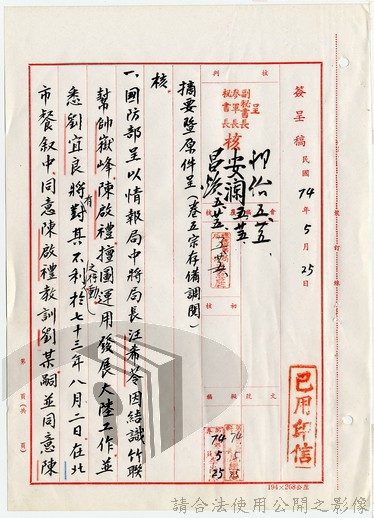 簽呈稿 民國74年5月25日
核判
呈
副秘書長
參軍長
秘書長
核
五.廿五
五.廿五
會簽
核
初核
文號
擬稿
74
5
25
已用印信
摘要暨原件呈（卷五宗存備調閱）
核
一、國防部呈以情報局中將局長汪希苓因結識竹聯
幫帥嶽峰、陳啟禮，擅圖運用發展大陸工作，並
悉劉宜良將有對其不利之行動，於七十三年八月二日在北
市餐敘中，同意陳啟禮教訓劉某，嗣並同意陳
第 頁(共 頁)
194×268公厘
請合法使用公開之影像